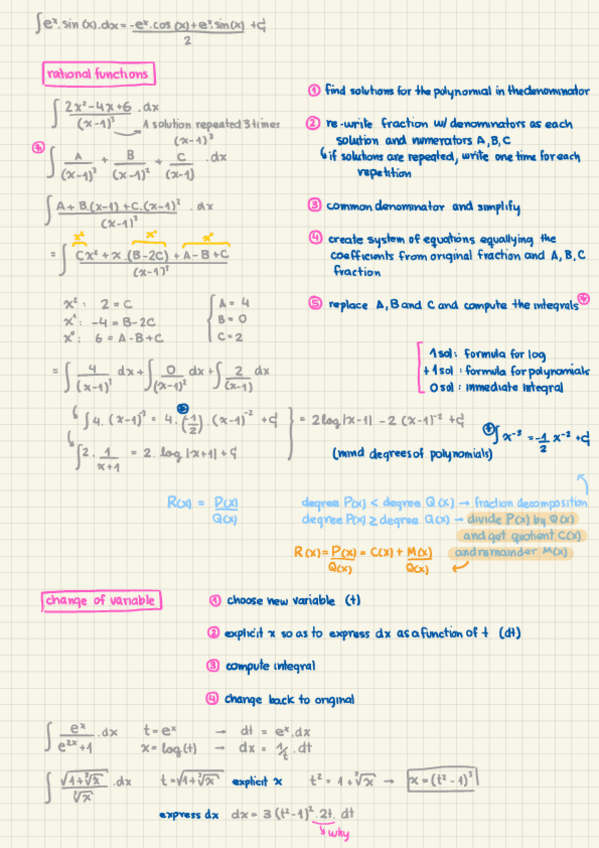 ∫eˣ. sin (x). dx = -eˣ. cos (x) + eˣ. sin(x) + C
2
rational functions
∫ 2x² - 4x + 6 . dx
(x-1)³ → 1 solution repeated 3 times
(x-1)³
∫ A/(x-1)³ + B/(x-1)² + C/(x-1) . dx
∫ A + B.(x-1) + C.(x-1)² . dx
(x-1)³
x² x¹ x⁰
= ∫ Cx² + x.(B-2C) + A-B+C
(x-1)³
x²: 2 = C
x¹: -4 = B-2C
x⁰: 6 = A-B+C
A = 4
B = 0
C = 2
= ∫ 4/(x-1)³ dx + ∫ 0/(x-1)² dx + ∫ 2/(x-1) dx
∫4. (x-1)³ = 4. (-1/2). (x-1)⁻² + C
∫2. 1/(x+1) = 2. log |x+1| + C
= 2log|x-1| - 2 (x-1)⁻² + C
① find solutions for the polynomial in the denominator
② re-write fraction w/ denominators as each
solution and numerators A, B, C
↳ if solutions are repeated, write one time for each
repetition
③ common denominator and simplify
④ create system of equations equallying the
coefficients from original fraction and A, B, C
fraction
⑤ replace A, B and C and compute the integrals
1 sol: formula for log
+1 sol: formula for polynomials
0 sol: immediate integral
∫ x⁻³ = -1/2 x⁻² + C
(mind degrees of polynomials)
R(x) = P(x)/Q(x)
degree P(x) < degree Q(x) → fraction decomposition
degree P(x) ≥ degree Q(x) → divide P(x) by Q(x)
and get quotient C(x)
and remainder M(x)
R(x) = P(x)/Q(x) = C(x) + M(x)/Q(x)
change of variable
① choose new variable (t)
② explicit x so as to express dx as a function of t (dt)
③ compute integral
④ change back to original
∫ eˣ/(e²ˣ+1) . dx t = eˣ → dt = eˣ. dx
x = log(t) → dx = 1/t . dt
∫ √(1+∛x)/∛x . dx t = √(1+∛x) explicit x t² = 1 + ∛x → x = (t²-1)³
express dx dx = 3 (t²-1)². 2t. dt
↳ why